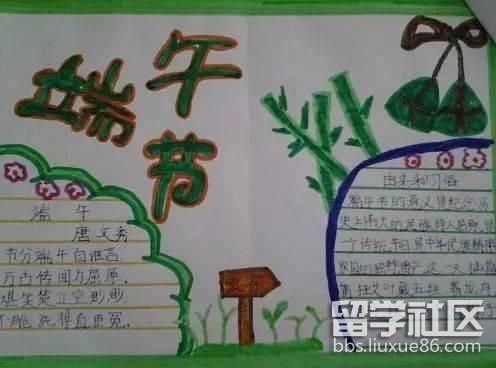 端午节
端 午
唐文秀
节分端午自谁言
万古传闻为屈原.
堪笑楚江空渺渺,
不能洗得直臣冤.
由来和习俗
端午节的意义是纪念历
史上伟大的民族诗人屈原,是
一个传统节日是中华民族精神
家园的独特遗产,这一天
挂艾叶 戴五丝 赛龙舟
留学社区
bbs.liuxue86.com